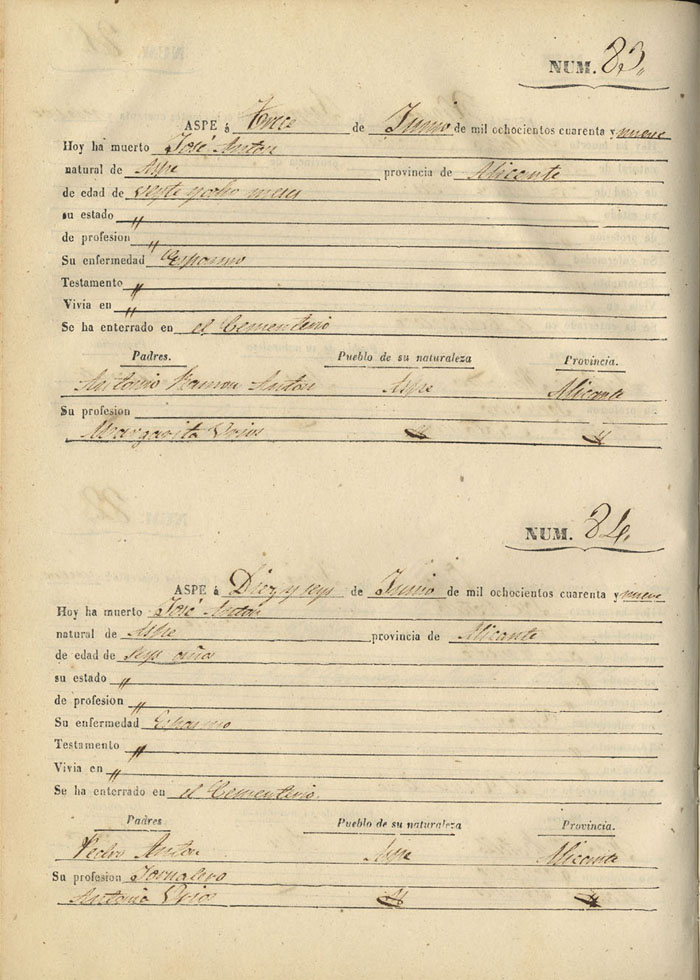 NUM. 83.
ASPE á Trece de Junio de mil ochocientos cuarenta y nueve
Hoy ha muerto José Anton
natural de Aspe provincia de Alicante
de edad de veyte y ocho meses
su estado "
de profesion "
Su enfermedad Espasmo
Testamento "
Vivia en "
Se ha enterrado en el Cementerio
Padres. Pueblo de su naturaleza Provincia.
Antonio Ramon Anton Aspe Alicante
Su profesion
Margarita "  "
NUM. 84.
ASPE á Diez y seys de Junio de mil ochocientos cuarenta y nueve
Hoy ha muerto José Anton
natural de Aspe provincia de Alicante
de edad de seys años
su estado "
de profesion "
Su enfermedad
Testamento "
Vivia en "
Se ha enterrado en el Cementerio.
Padres Pueblo de su naturaleza Provincia.
Pedro Anton Aspe Alicante
Su profesion Jornalero
Antonia " "